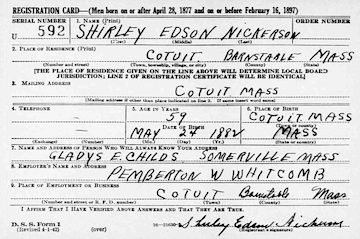 REGISTRATION CARD—(Men born on or after April 28, 1877 and on or before February 16, 1897)
SERIAL NUMBER 1. NAME (Print) ORDER NUMBER
U 592 SHIRLEY EDSON NICKERSON
(First) (Middle) (Last)
2. PLACE OF RESIDENCE (Print)
COTUIT BARNSTABLE MASS
(Number and street) (Town, township, village, or city) (County) (State)
[THE PLACE OF RESIDENCE GIVEN ON THE LINE ABOVE WILL DETERMINE LOCAL BOARD
JURISDICTION; LINE 2 OF REGISTRATION CERTIFICATE WILL BE IDENTICAL]
3. MAILING ADDRESS
COTUIT MASS
[Mailing address if other than place indicated on line 2. If same insert word same]
4. TELEPHONE 5. AGE IN YEARS 6. PLACE OF BIRTH
59 COTUIT
DATE OF BIRTH (Town or county)
MAY 24 1882 MASS
(Exchange) (Number) (Mo.) (Day) (Yr.) (State or country)
7. NAME AND ADDRESS OF PERSON WHO WILL ALWAYS KNOW YOUR ADDRESS
GLADYS E. CHILDS SOMERVILLE MASS
8. EMPLOYER'S NAME AND ADDRESS
PEMBERTON W WHITCOMB
9. PLACE OF EMPLOYMENT OR BUSINESS
COTUIT Barnstable Mass
(Number and street or R. F. D. number) (Town) (County) (State)
I AFFIRM THAT I HAVE VERIFIED ABOVE ANSWERS AND THAT THEY ARE TRUE.
D. S. S. Form 1
(Revised 4-1-42) (over) Shirley Edson Nickerson